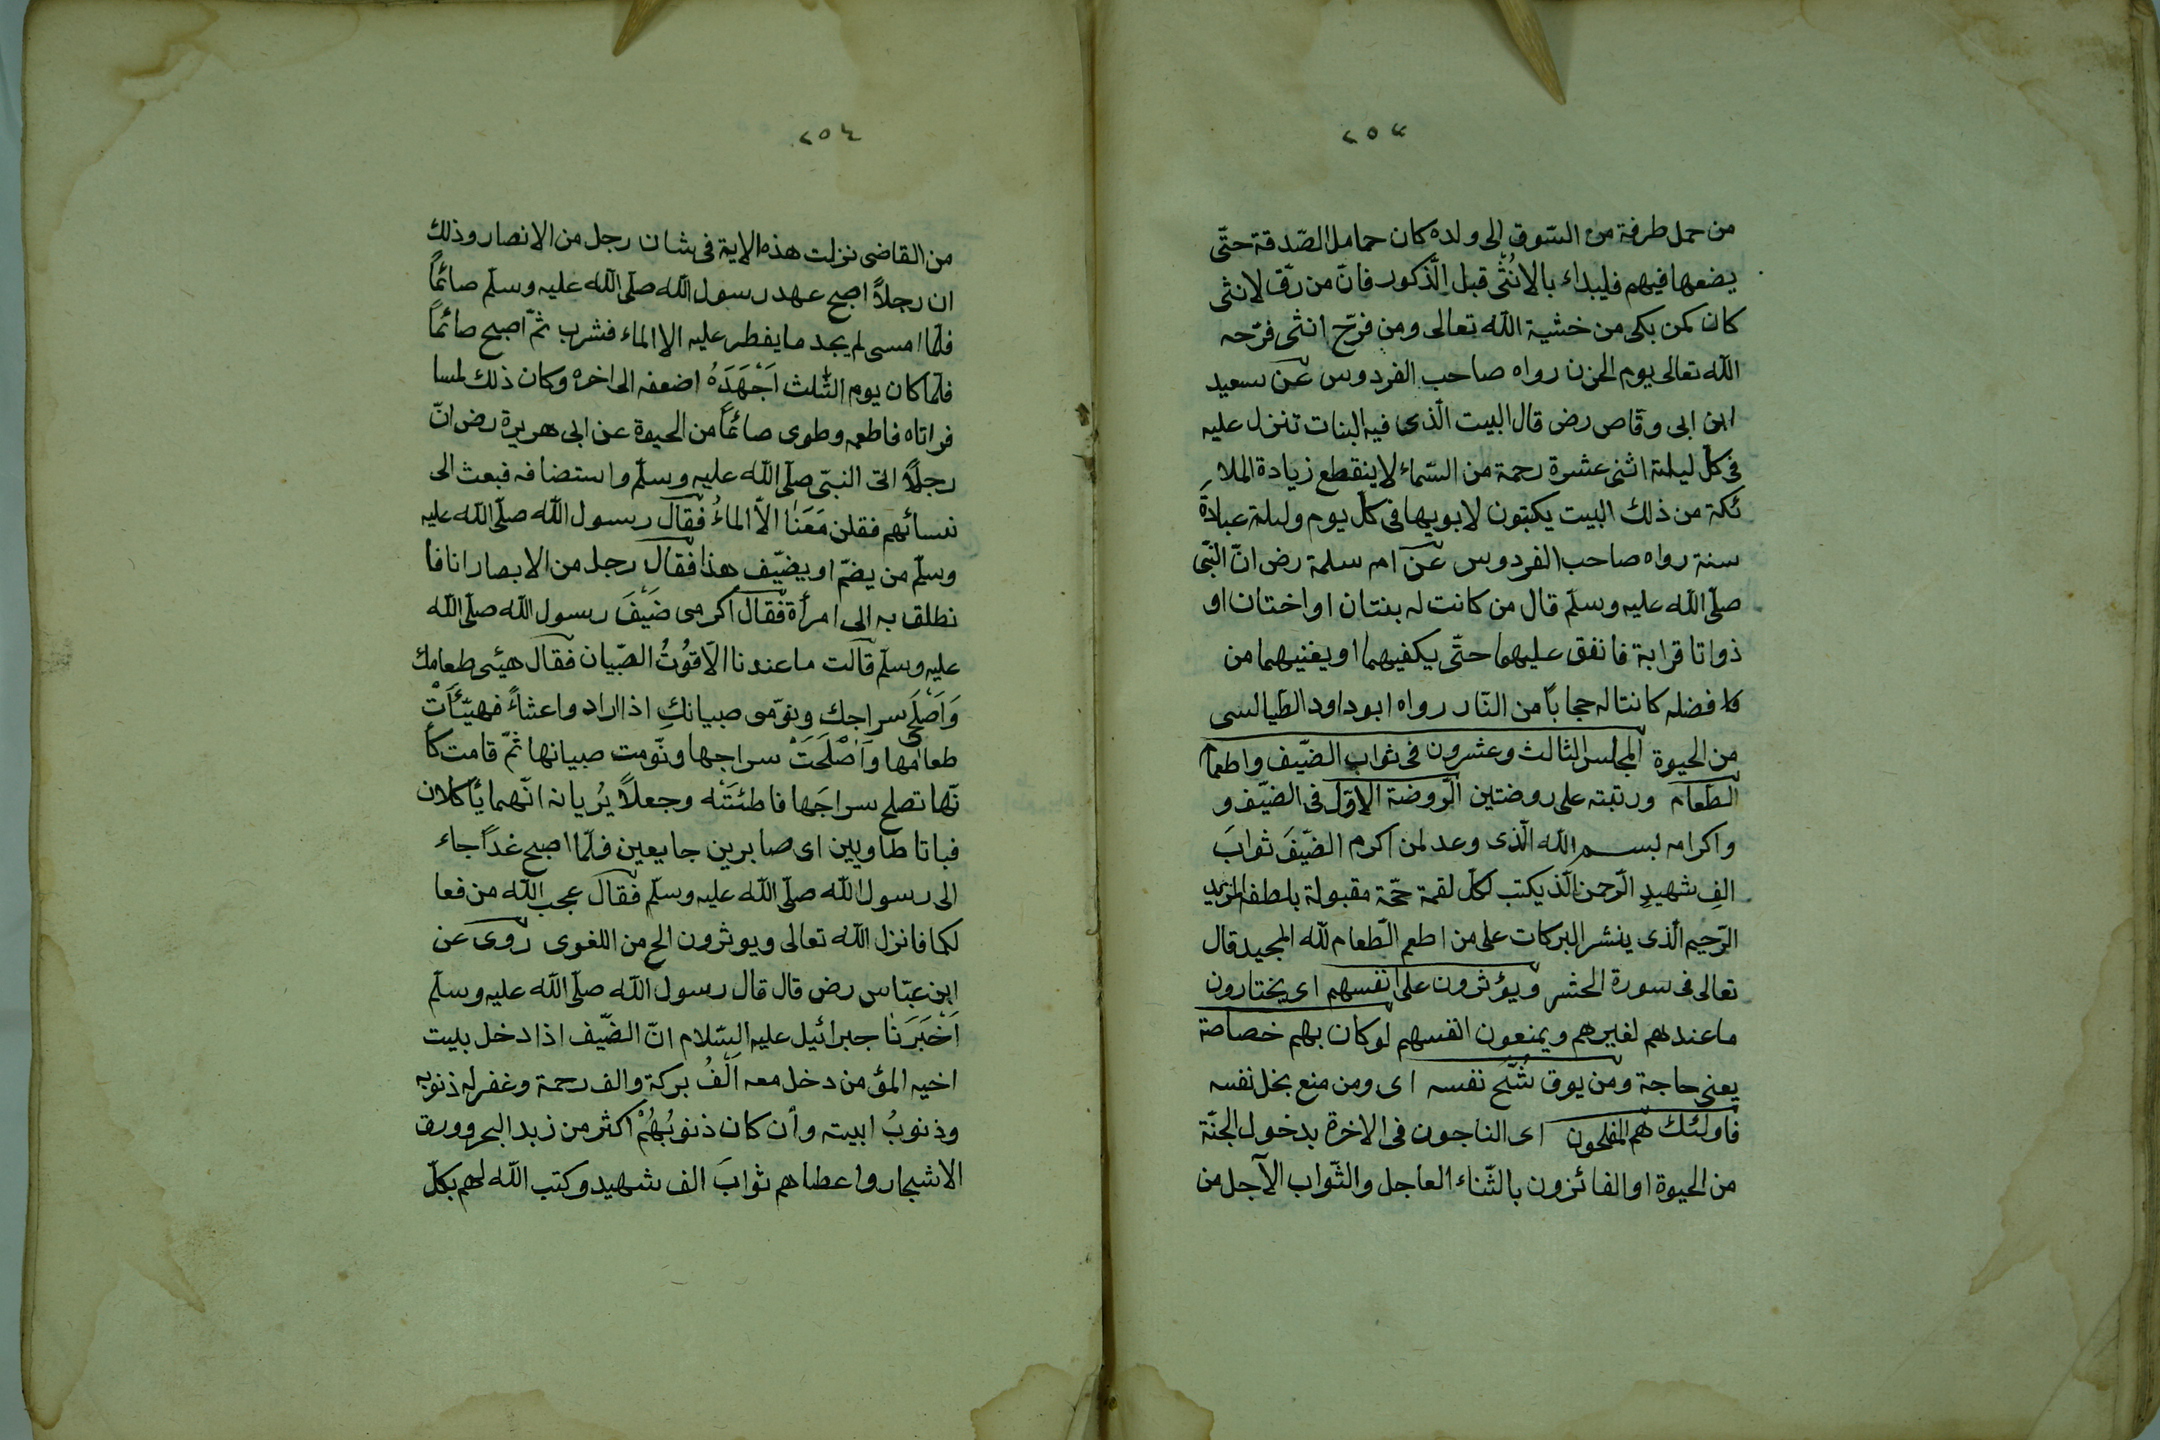 ٢٥٣
من حمل طرفة من السّوق الى ولده كان حمامل الصّدقة حتّى
يضعها فيهم فليبداء بالانُثى قبل الذّكور فانّ من رقّ لانثى
كان كمن بكى من خشية الله تعالى ومن فرّح انثى فرّحه
الله تعالى يوم الحزن رواه صاحب الفردوس عن سعيد
ابن ابى وقّاص رض قال البيت الّذى فيه البنات تنزل عليه
فى كلّ ليلة اثنى عشرة رحمة من السّماء لا ينقطع زيادة الملا
ئكة من ذلك البيت يكتبون لابويها فى كلّ يوم وليلة عبادةَ
سنة رواه صاحب الفردوس عن ام سلمة رض انّ النّبى
صلّى الله عليه وسلّم قال من كانت له بنتان او اختان او
ذواتا قرابة فانفق عليهما حتّى يكفيهما او يغنيهما من
فضله كانتا له حجاباً من النّار رواه ابو داود الطّيالسى
من الحيوة المجلس الثالث وعشرون فى ثواب الضّيف واطعام
الطّعام ورتبته على روضتين الرّوضة الاوّل فى الضّيف و
واكرامه بسم الله الّذى وعد لمن اكرم الضّيفَ ثوابَ
الفِ شهيدِ الرّحمن الّذ يكتب لكلّ لقمة حجّة مقبولة بلطفه المزيد
الرّحيم الّذى ينشر البركات على من اطعم الطّعام لله المجيد قال
تعالى فى سورة الحشر ويؤثرون على انفسهم اى يختارون
ما عندهم لغيرهم ويمنعون انفسهم لو كان بهم خصاصة
يعنى حاجة ومن يوق شُّحَّ نفسه اى ومن منع بخل نفسه
فاولئك هم المفلحون اى الناجون فى الاخرة بدخول الجنّة
من الحيوة او الفائزون بالثّناء العاجل والثّواب الآجل من
٢٥٤
من القاضى نزلت هذه الاية فى شان رجل من الانصار وذلك
ان رجلاً اصبح عهد رسول الله صلّى الله عليه وسلّم صائماً
فلمّا امسى لم يجد ما يفطر عليه الا الماء فشرب ثمّ اصبح صائماً
فلمّا كان يوم الثّلث اَجْهَدَهُ اضعفه الى اخره وكان ذلك لمسا
فر اتاه فاطعمه وطوى صائماً من الحيوة عن ابى هريرة رض انّ
رجلاً اتى النبّى صلّى الله عليه وسلّم واستضافه فبعث الى
نسائهم فقلن مَعَنٰا الاّ الماءُ فقال رسول الله صلّى الله عليه
وسلّم من يضمّ او يضيّف هذا فقال رجل من الابصار انا فا
نطلق به الى امرأة فقال اكرمى ضَيْفَ رسول الله صلّى الله
عليه وسلّم قالت ما عندنا الاّ قُوتُ الصّبيان فقال هيّئى طعامك
وَاَصْلَحى سراجك ونوّمى صبيانكِ اذا اراد واعشاءً فهيّئَاَتْ
طعامها وَاَصْلَحَتْ سراجها ونوّمت صبيانها ثمّ قامت كاَ
نّها تصلح سراجَها فاطئتَتْه وجعلاً يُريانه انّهما يأكلان
فباتا طاويين اى صابرين جايعين فلّما اصبح غداً جاء
الى رسول الله صلّى الله عليه وسلّم فقال عجب الله من فعا
لكما فانزل الله تعالى ويوثرون الح من اللغوى روى عن
ابن عبّاس رض قال قال رسول الله صلّى الله عليه وسلّم
اَخْبَرَنٰا جبرائيل عليه السّلام انّ الضّيف اذا دخل بليت
اخيه المؤمن دخل معه اَلْفُ بركة والف رحمة وغفر له ذنوبه
وذنوبُ ابيته وأن كان ذنوبُهُمْ اكثر من زبد البحر وورق
الاشجار واعطاهم ثوابَ الف شهيد وكتب الله لهم بكلّ